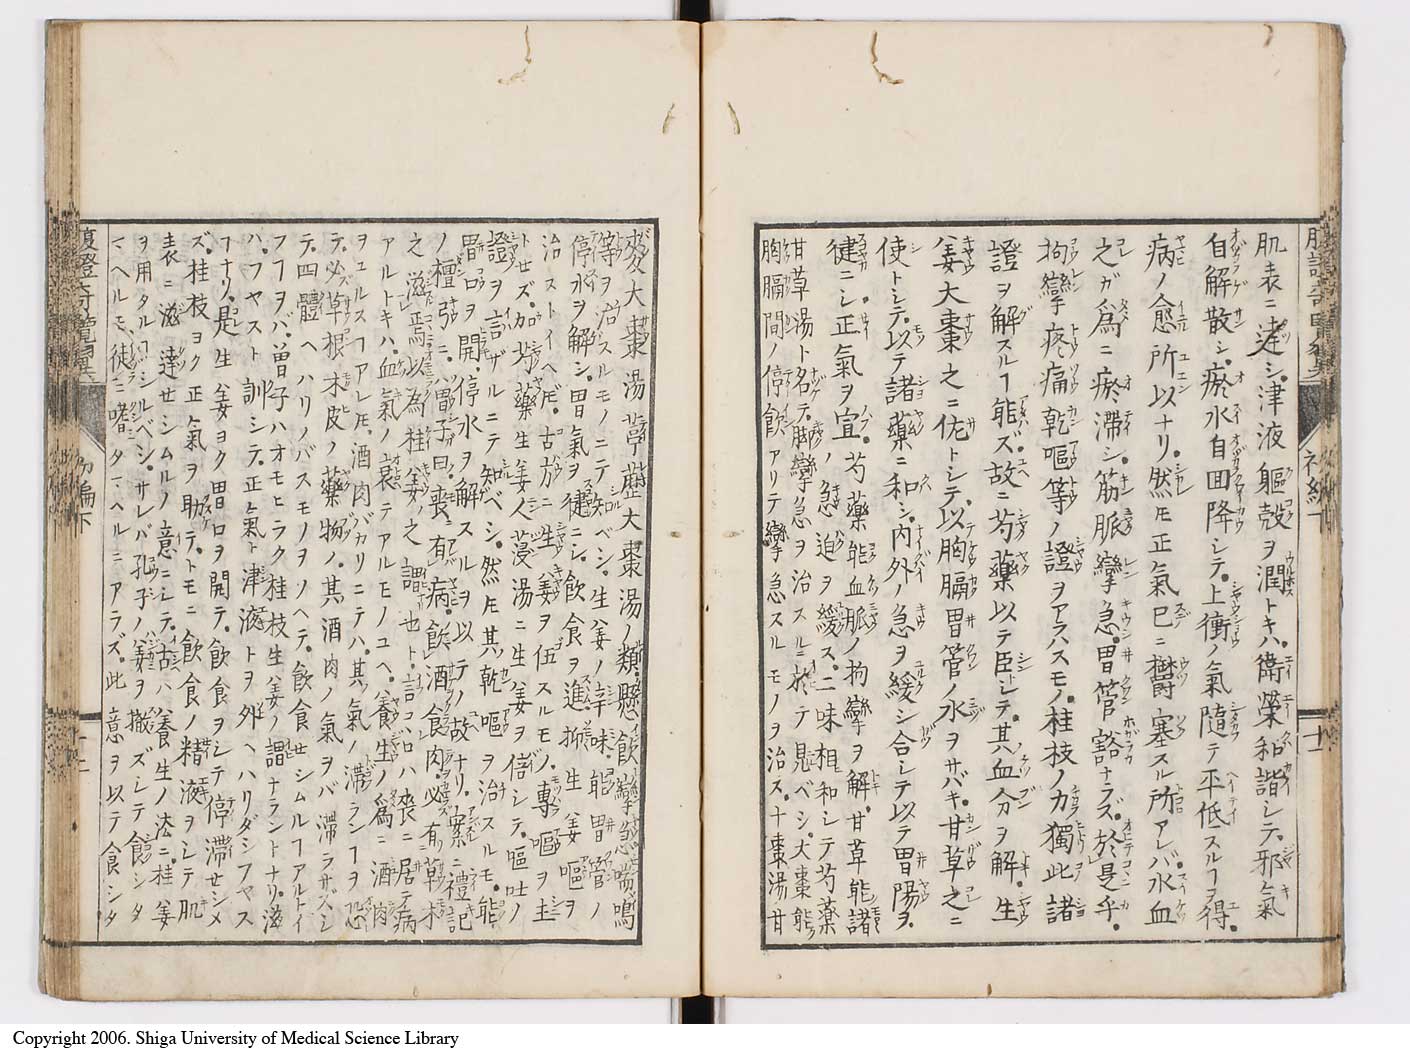 肌表ニ達シ、津液軀殼ヲ潤トキハ、衞榮和諧シテ、邪氣
自解散シ、瘀水自囬降シテ、上衝ノ氣隨テ平低スルヿヲ得。
病ノ愈所以ナリ。然𪜈正氣已ニ欝塞スル所アレバ、水血
之ガ爲ニ瘀滯シ、筋脈攣急、胃管豁ナラズ。於是乎、
拘攣疼痛乾嘔等ノ證ヲアラハスモノ、桂枝ノ力獨此諸
證ヲ解スルヿ能ズ。故ニ芍藥以テ臣トシテ、其血分ヲ解、生
姜大棗之ニ佐トシテ、以胸膈胃管ノ水ヲサバキ、甘草之ニ
使トシテ、以テ諸藥ニ和シ、内外ノ急ヲ緩シ、合シテ以テ胃陽ヲ
健ニシ、正氣ヲ宜。芍藥能血脈ノ拘攣ヲ解、甘草能諸
ノ急迫ヲ緩ス、二味相和シテ芍藥
甘草湯ト名テ、脚攣急ヲ治スルニ於テ見ベシ。大棗能
胸膈間ノ停飲アリテ攣急スルモノヲ治ス。十棗湯甘
麥大棗湯葶藶大棗湯ノ類、懸飲攣急喘鳴
等ヲ治スルモノニテ知ベシ。生姜ノ辛味、能胃管ノ
停水ヲ解シ、胃氣ヲ健ニシ、飲食ヲ進。抑生姜嘔ヲ
治ストイヘ𪜈、古方ニ生姜ヲ伍スルモノ、專嘔ヲ主
トセズ。加芍藥生姜人葠湯ニ生姜ヲ倍シテ、嘔吐ノ
證ヲ言ザルニテ知ベシ。然𪜈其乾嘔ヲ治スルモ、能
胃口ヲ開、停水ヲ解スルヲ以テノ故ナリ。案ニ禮記
ノ檀弓ニ、曽子曰、喪有病、飲酒食肉、必有草木
之滋焉、以為桂姜之謂也ト、言コヽロハ喪ニ居テ病
アルトキハ、血氣ノ衰テアルモノユヘ、養生ノ爲ニ酒肉
ヲユルスヿアレ𪜈、酒肉バカリニテハ、其氣ノ滯ランヿヲ恐
テ、必草根木皮ノ藥物ノ、其酒肉ノ氣ヲバ滯ラザズシ
テ、四體ヘハリノバスモノヲソヘテ、飲食セシムルヿアルトイ
フヿヲバ、曽子ハオモヒラク桂枝生姜ノ謂ナラントナリ。滋
ハ、フヤスト訓シテ、正氣ト津液トヲ外ヘハリダシフヤス
ヿナリ。是生姜ヨク胃口ヲ開テ、飲食ヲシテ停滯セシメ
ズ、桂枝ヨク正氣ヲ助テ、トモニ飲食ノ精液ヲシテ肌
表ニ滋達セシムルノ意ニシテ、古ハ養生ノ法ニ、桂姜
ヲ用タルヿシルベシ。サレバ孔子ノ姜ヲ撤ズシテ食シタ
マヘルモ、徒ニ嗜タマヘルニアラズ。此意ヲ以テ食シタ
初編下
Copyright 2006. Shiga University of Medical Science Library